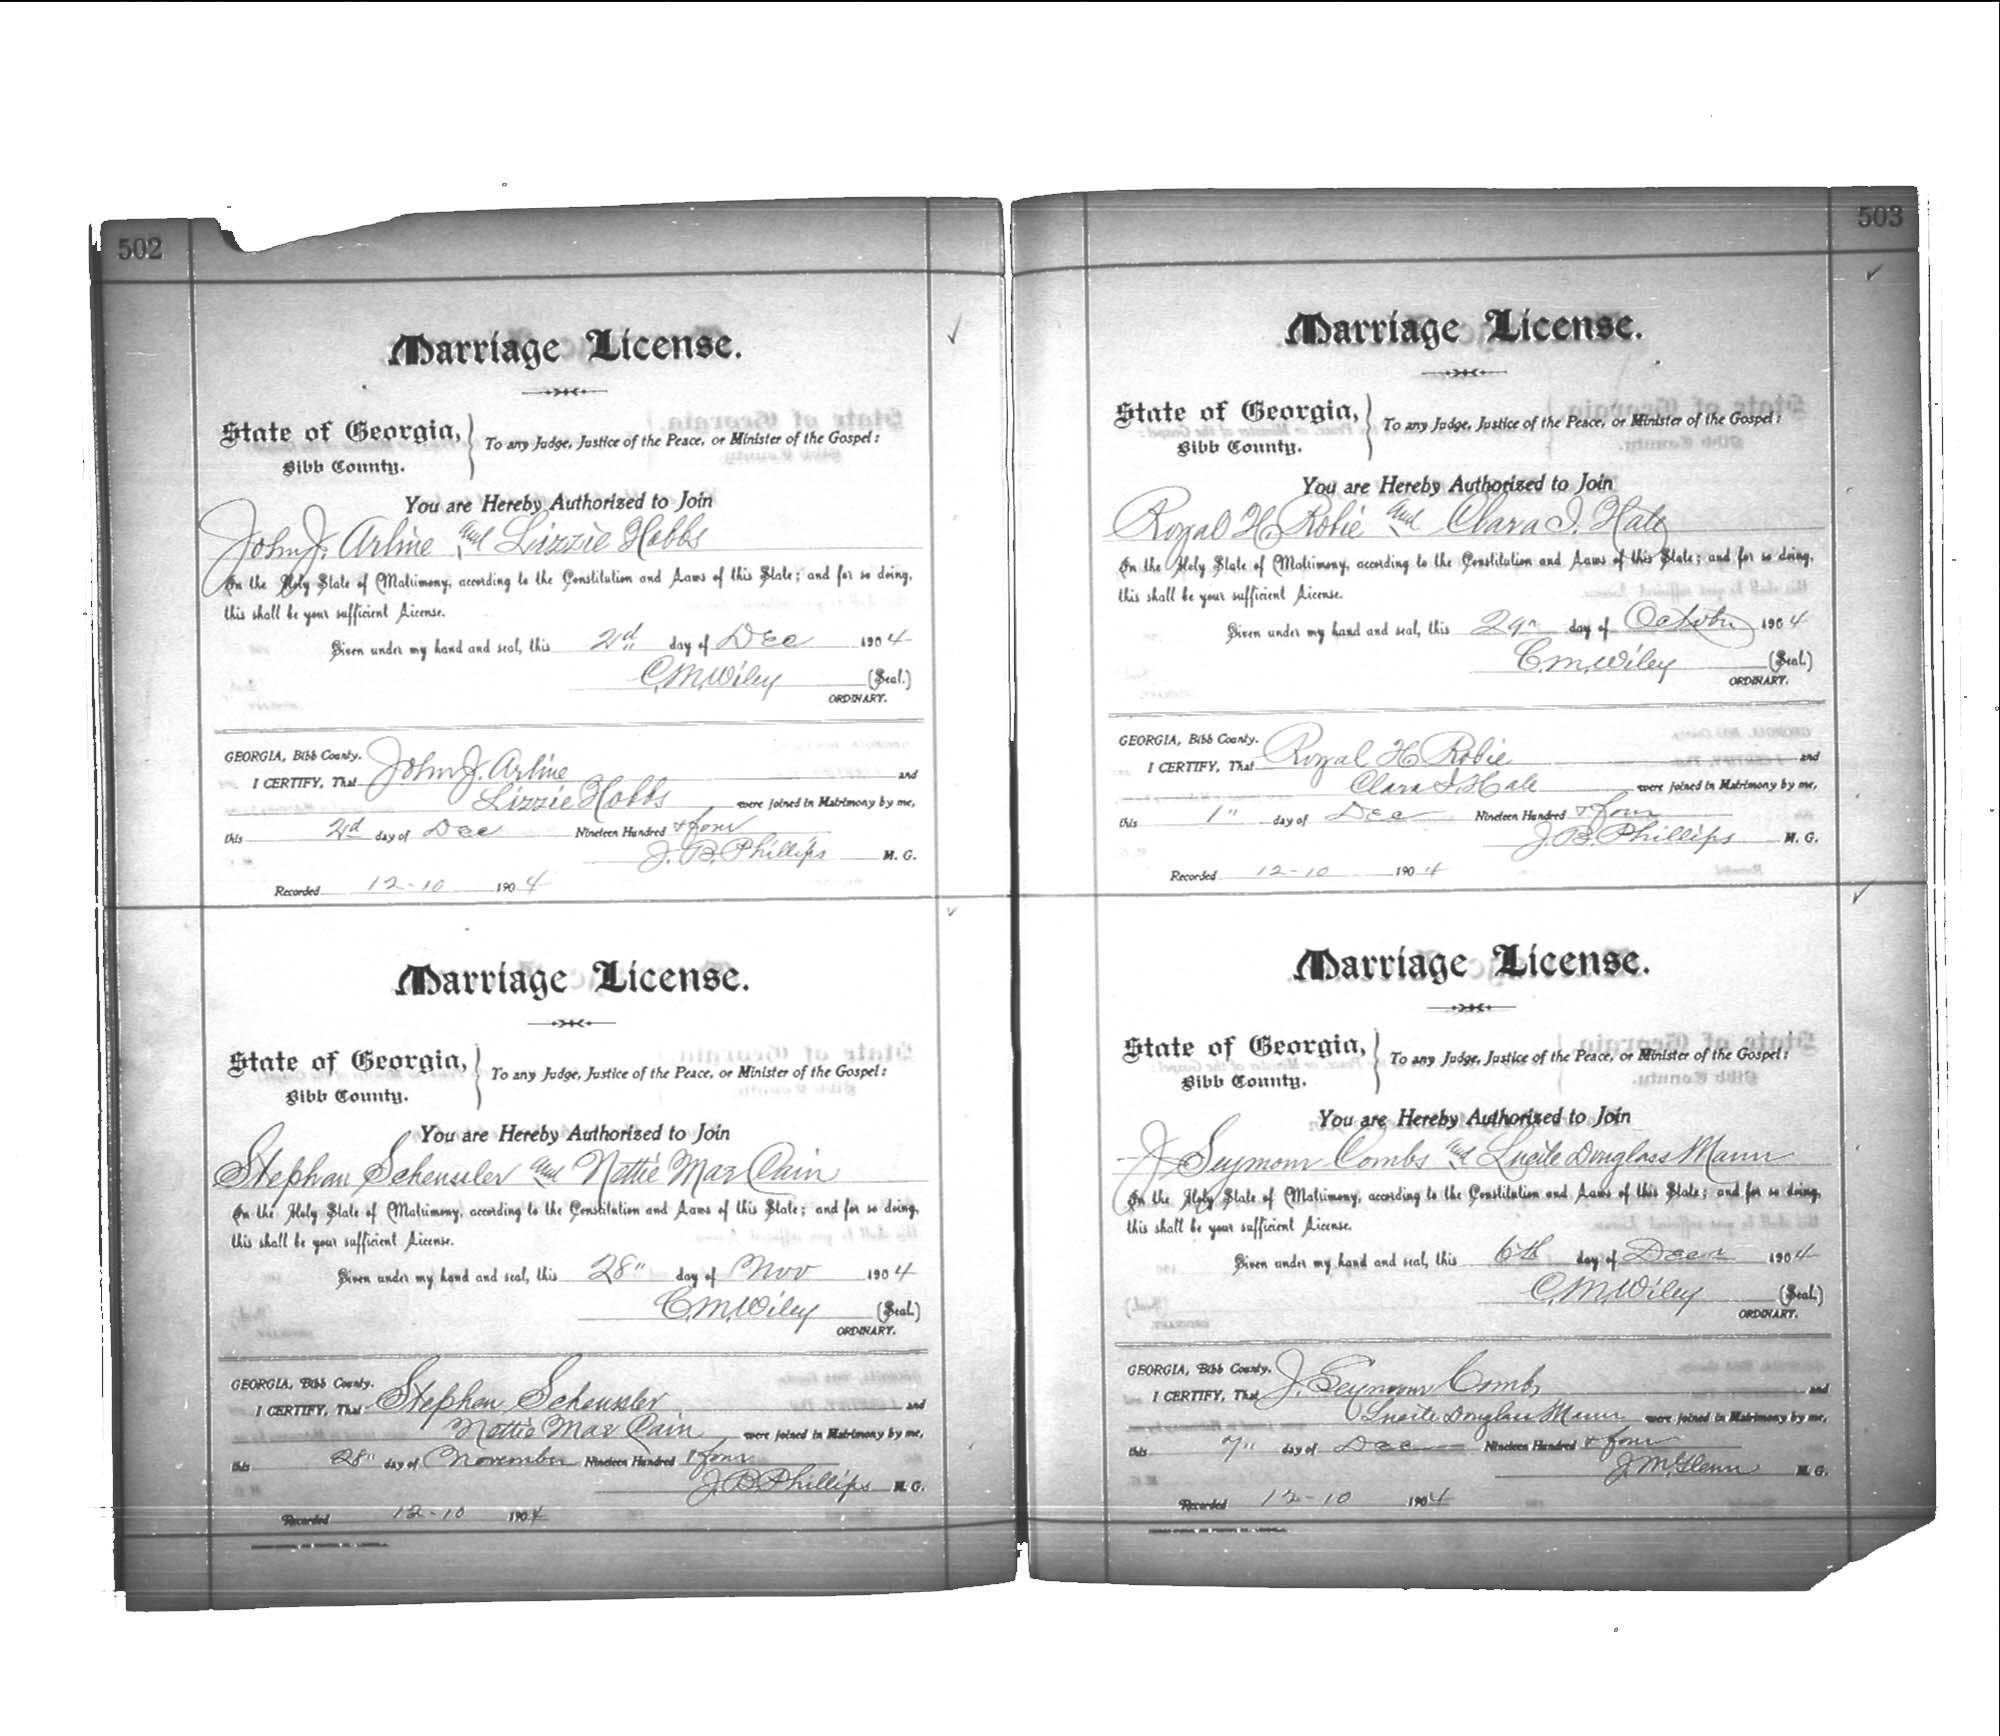 502
Marriage License.
State of Georgia,
Bibb County.
To any Judge, Justice of the Peace, or Minister of the Gospel:
You are Hereby Authorized to Join
John J. Arline and Lizzie Hobbs
In the Holy State of Matrimony, according to the Constitution and Laws of this State; and for so doing,
this shall be your sufficient License.
Given under my hand and seal, this 2d day of Dec 1904
C. M. Wiley (Seal.)
ORDINARY.
GEORGIA, Bibb County.
I CERTIFY, That John J. Arline and
Lizzie Hobbs were joined in Matrimony by me,
this 2d day of Dec Nineteen Hundred & four
J. B. Phillips M. G.
Recorded 12-10 1904
Marriage License.
State of Georgia,
Bibb County.
To any Judge, Justice of the Peace, or Minister of the Gospel:
You are Hereby Authorized to Join
Stephan Scheussler and Nettie Mae Cain
In the Holy State of Matrimony, according to the Constitution and Laws of this State; and for so doing,
this shall be your sufficient License.
Given under my hand and seal, this 28" day of Nov 1904
C. M. Wiley (Seal.)
ORDINARY.
GEORGIA, Bibb County.
I CERTIFY, That Stephan Scheussler and
Nettie Mae Cain were joined in Matrimony by me,
this 28" day of November Nineteen Hundred & four
J. B. Phillips M. G.
Recorded 12-10 1904
503
Marriage License.
State of Georgia,
Bibb County.
To any Judge, Justice of the Peace, or Minister of the Gospel:
You are Hereby Authorized to Join
Royal H. Robie and Clara I. Hale
In the Holy State of Matrimony, according to the Constitution and Laws of this State; and for so doing,
this shall be your sufficient License.
Given under my hand and seal, this 29" day of October 1904
C. M. Wiley (Seal.)
ORDINARY.
GEORGIA, Bibb County.
I CERTIFY, That Royal H Robie and
Clara I. Hale were joined in Matrimony by me,
this 1" day of Dec Nineteen Hundred & four
J. B. Phillips M. G.
Recorded 12-10 1904
Marriage License.
State of Georgia,
Bibb County.
To any Judge, Justice of the Peace, or Minister of the Gospel:
You are Hereby Authorized to Join
J Seymour Combs and Lucile Douglass Mann
In the Holy State of Matrimony, according to the Constitution and Laws of this State; and for so doing,
this shall be your sufficient License.
Given under my hand and seal, this 6th day of Decr 1904
C. M. Wiley (Seal.)
ORDINARY.
GEORGIA, Bibb County.
I CERTIFY, That J. Seymour Combs and
Lucile Douglass Mann were joined in Matrimony by me,
this 7" day of Dec Nineteen Hundred & four
J. M. Glenn M. G.
Recorded 12-10 1904